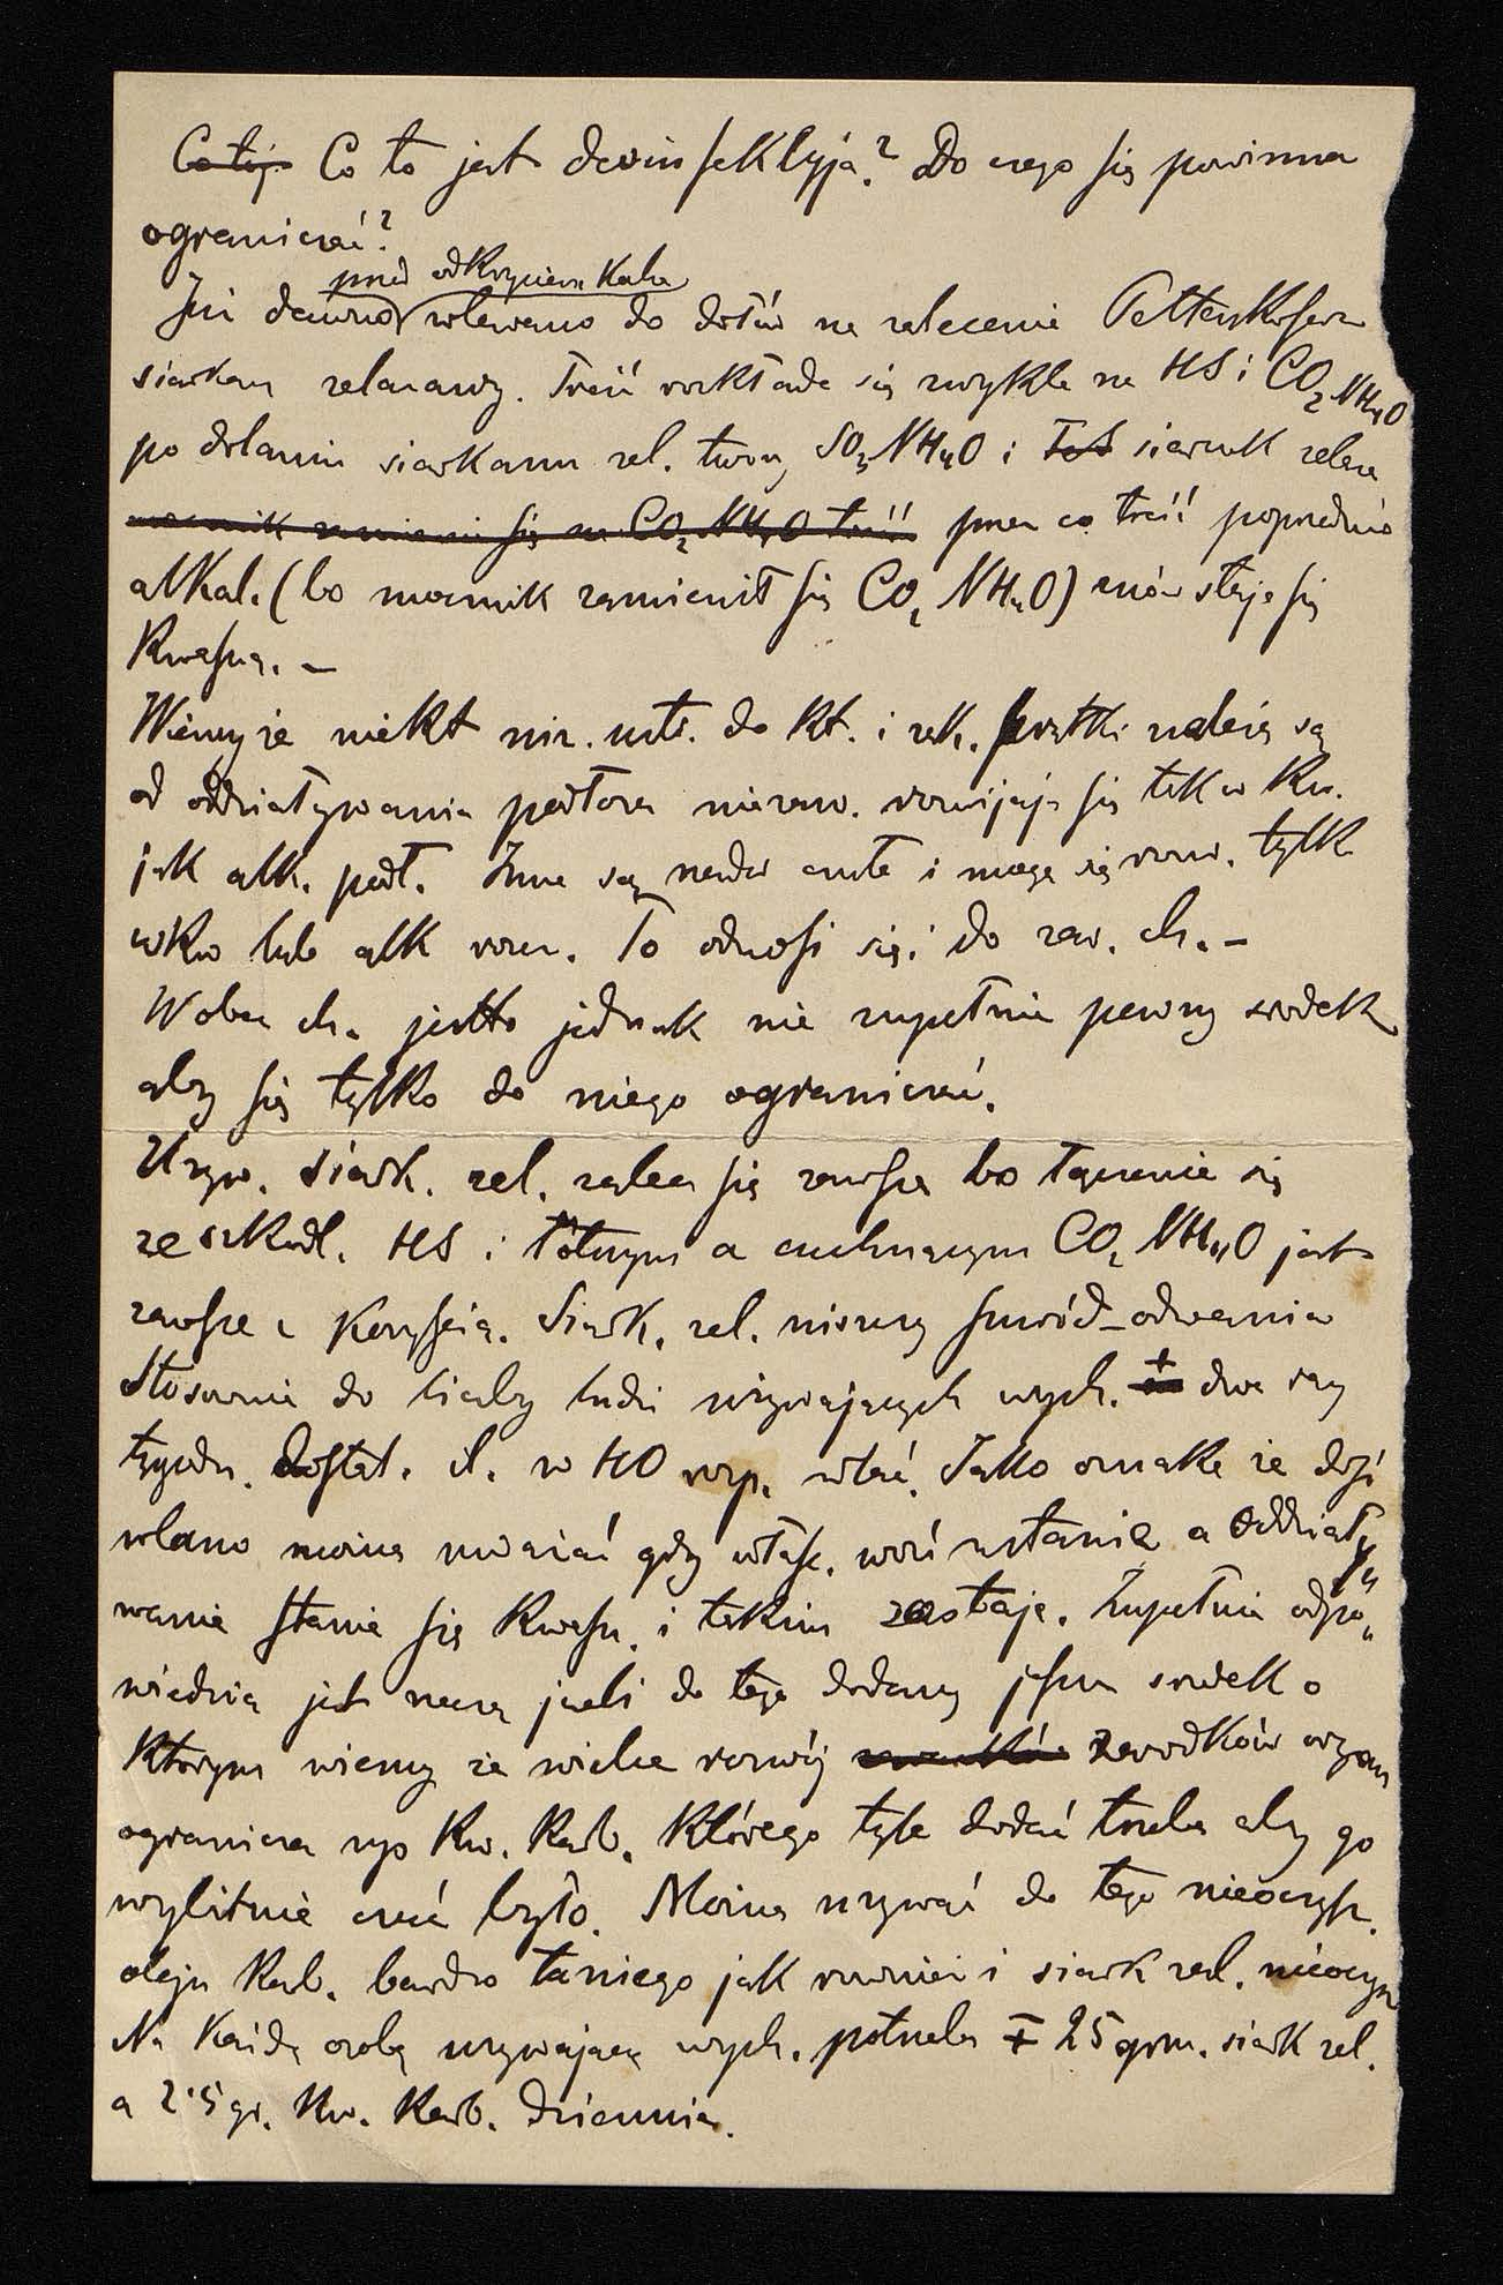 Co to jest dezinfekcyja? Do czego się powinna
ograniczać?
przed odkryciem Kocha
Już dawno wlewano do dołów na zalecenie Pettenkofera
siarkan żelazawy. Treść rozkłada się zwykle na HS i CO₂NH₄O
po dolaniu siarkanu żel. tworzy SO₃NH₄O i siarczek żelaza
mocznik zamienia się na CO₂NH₄O treść przez co treść poprzednio
alkal. (bo mocznik zamienił się CO₂NH₄O) znów staje się
kwaśną. –
Wiemy że niekt niż. ustr. do kt. i zależą są
od oddziaływania podłoża rozwijają się tak w kw.
jak alk. podł. Inne są nader czułe i mogą się rozw. tylk
w kw lub alk rozcz. To odnosi się i do zaw. ch. –
Wobec ch. jestto jednak nie zupełnie pewny srodek
aby się tylko do niego ograniczać.
Używ. siark. żel. zaleca się zawsze bo łączenie się
ze szkodl. HS i lotnym a cuchnącym CO₂NH₄O jest
zawsze z korzyścią. Siark. żel. niszczy smród – odwania
Stosownie do liczby ludzi używających wych. dwa razy
tygodn. dostat. il. w HO rozp. wlać. Jako oznakę że dość
wlano można uważać gdy właśc. woń ustanie a oddziały„
wanie stanie się kwaśn. i takim zostaje. Zupełnie odpo„
wiednią jest jeżeli do tego dodamy srodek o
którym wiemy że wielce rozwój zarodków organ
ogranicza np kw. karb. którego tyle dodać trzeba aby go
wybitnie czuć było. Można używać do tego nieoczyszcz.
oleju karb. bardzo taniego jak również i siark żel. nieoczysz
Na każdą osobę używającą wych. potrzeba ∓ 25 grm. siark żel.
a 2·5 gr. kw. karb. dziennie.